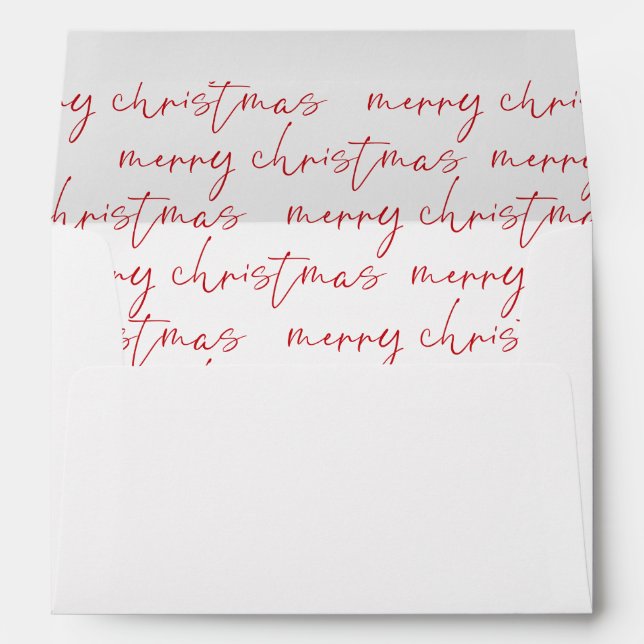 ry christmas merry chris
merry christmas merry
hristmas merry christmas
ry christmas merry
stmas merry chris